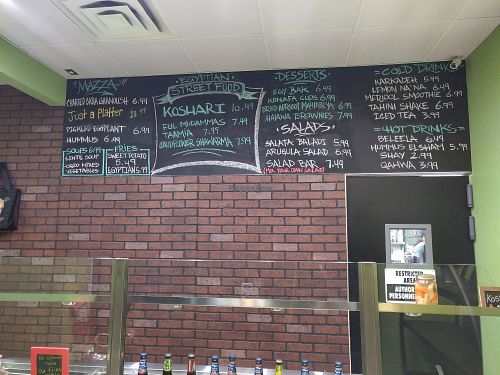 MAZZA
CHARRED BABA GHANOUSH 6.99
Just a Platter
PICKLED EGGPLANT 6.99
HUMMUS 6.99
SOUPS 6.99
LENTIL SOUP
VEGETABLES
FRIES
SWEET POTATO
5.49
EGYPTIAN 5.99
EGYPTIAN
STREET FOOD
KOSHARI 10.49
FUL MUDAMMAS 7.99
TAAMIA 7.99
CAULIFLOWER SHAWARMA 7.99
DESSERTS
EGY BAR 6.99
KONAFA CUPS 6.99
DRIED APRICOT MAHALABEYA 6.99
HALAWA BROWNIES 7.99
SALADS
SALATA BALADI 5.99
ARUGULA SALAD 6.99
SALAD BAR 7.49
(MIX YOUR OWN SALAD)
COLD DRINKS
KARKADEH 5.49
LEMON NA NA 6.99
MEDJOOL SMOOTHIE 6.99
TAHINI SHAKE 6.99
ICED TEA 3.99
HOT DRINKS
BELEELA 6.99
HUMMUS ELSHAM 5.99
SHAY 2.99
QAHWA 3.99
RESTRICTED
AREA
AUTHOR
PERSONNEL